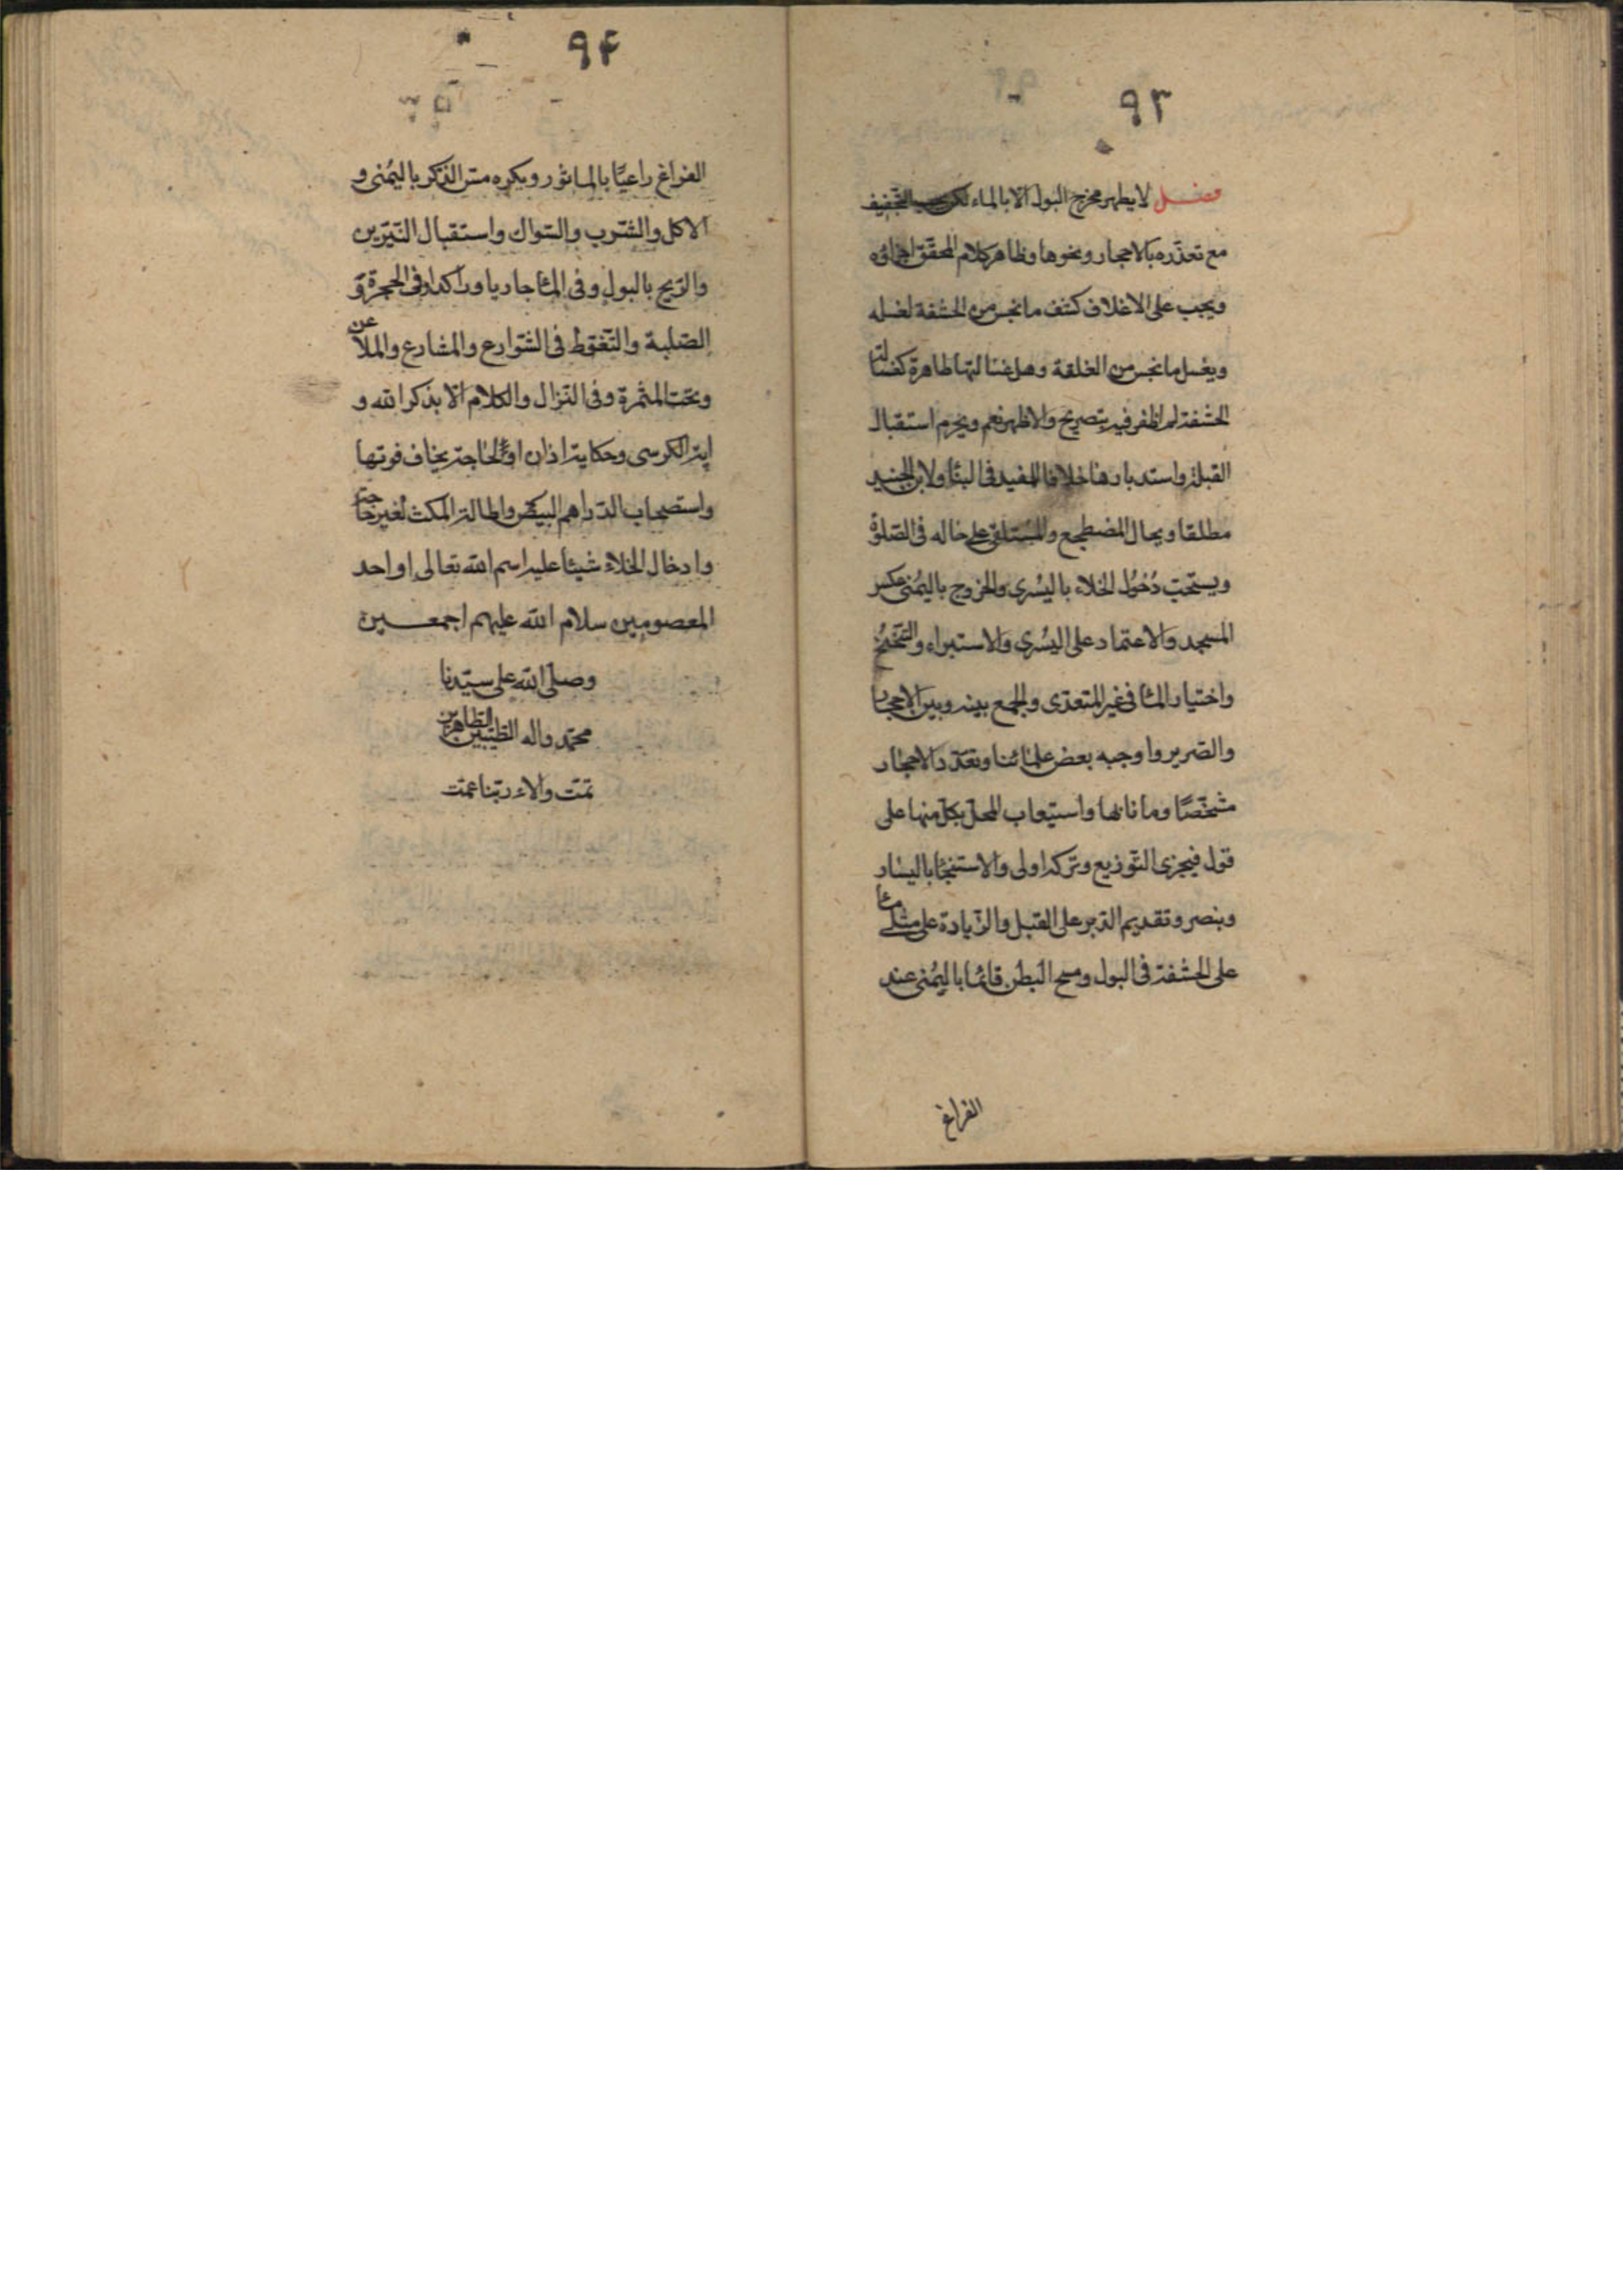 ٩٣
فصل لا يطهر مخرج البول الا بالماء لكن يجب التخفيف
مع تعذره بالاحجار ونحوها وظاهر كلام المحقق اجزاؤه
ويجب على الاغلاف كشف ما نجس من الحشفة لغسله
ويغسل ما نجس من الغلفة وهل غسالتها طاهرة كغسالة
الحشفة لم اظفر فيه بتصريح والاظهر نعم ويحرم استقبال
القبلة واستدبارها خلافا للمفيد في البناء ولابن الجنيد
مطلقا ويحال المضطجع والمستلقي على حاله في الصلوة
ويستحب دُخُول الخلاء باليُسرى والخروج باليُمنى عكس
المسجد والاعتماد على اليُسرى والاستبراء والتنحنح
واختيار الماء في غير المتعدى والجمع بينه وبين الاحجار
والصرير واوجبه بعض علمائنا وتعدد الاحجار
مشخصًا وما نابها واستيعاب المحل بكل منها على
قول فيجزى التوزيع وتركه اولى والاستنجاء باليسار
وبنصر وتقديم الدبر على القبل والزيادة على مثلى ما
على الحشفة في البول ومسح البطن قائما باليُمنى عند
الفراغ
٩۴
الفراغ راعيًا بالماثور ويكره مس الذكر باليُمنى و
الاكل والشرب والسواك واستقبال النيّرين
والريح بالبول وفى الماء جاريا وراكدا وفى الحجرة و
الصّلبة والتّغوّط فى الشّوارع والمشارع والملاعن
وتحت المثمرة وفى النزال والكلام الا بذكر الله و
اية الكرسى وحكاية اذان او لحاجة يخاف فوتها
واستصحاب الدّراهم البيض واطالة المكث لغير حاجة
وادخال الخلاء شيئا عليه اسم الله تعالى او احد
المعصومين سلام الله عليهم اجمعين
وصلى الله على سيّدنا
محمّد واله الطّيبين الطاهرين
تمّت والاء ربّنا عمّت